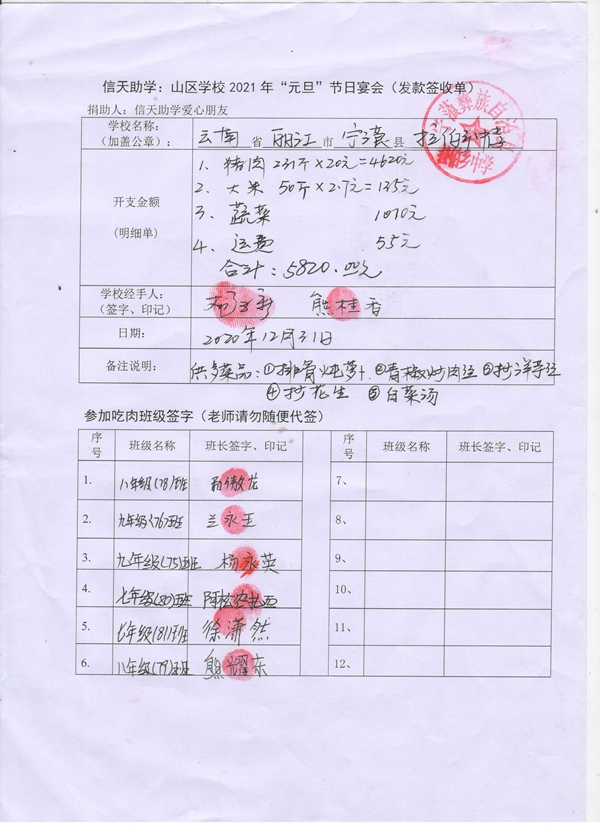 信天助学：山区学校2021年“元旦”节日宴会（发款签收单）
捐助人：信天助学爱心朋友
学校名称：
（加盖公章）：
云南 省 丽江 市 宁蒗 县 拉伯中学
开支金额
(明细单)
1、猪肉 231斤×20元=4620元
2、大米 50斤×2.7元=135元
3、蔬菜 1010元
4、运费 55元
合计：5820.00元
学校经手人：
（签字、印记）
熊桂香
日期：
2020年12月31日
备注说明：
供多菜品：①排骨炖萝卜 ②青椒炒肉 ③炒洋芋
④炒花生 ⑤白菜汤
参加吃肉班级签字（老师请勿随便代签）
序号 班级名称 班长签字、印记 序号 班级名称 班长签字、印记
1. 八年级(78)班 7、
2. 九年级(76)班 兰永玉 8、
3. 九年级(75)班 杨永英 9、
4. 七年级(80)班 10、
5. 七年级(81)班 徐潇然 11、
6. 八年级(79)班 熊耀东 12、